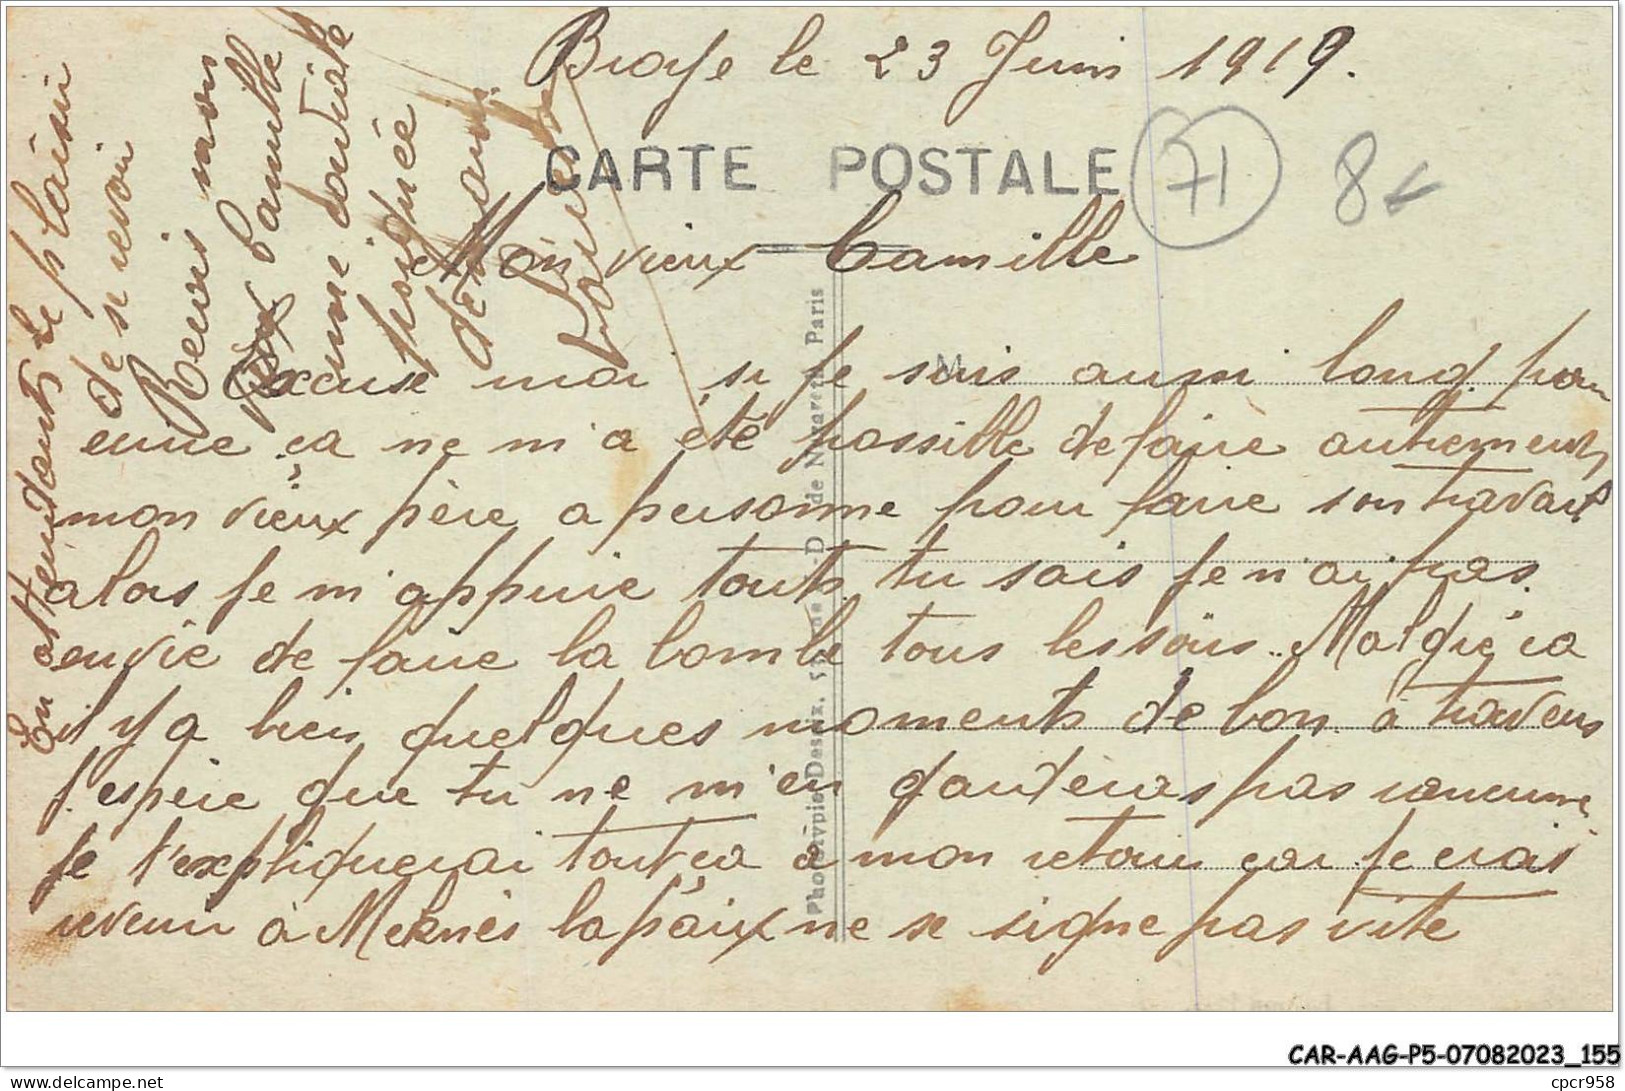 Braye le 23 Juin 1919.
CARTE POSTALE
71
8
Mon vieux Camille
Excuse moi si je suis aussi long. pour
ecrire ça ne m'a été possible de faire autrement,
mon vieux père a personne pour faire son travail
alors je m'appuie touts tu sais je n'ai pas
envie de faire la bombe tous les soirs.. Malgré ca
il y a bien quelques moments de bon à travers
j'espère que tu ne m'en garderas pas rancune
je t'expliquerai tout ca a mon retour car je crois
revenir à Meknès la paix ne se signe pas vite
En attendant le plaisir
de se revoir
Recois mon
vieux Camille
une cordiale
poignée
de main
Phototypie Desaix, D de Nazareth, Paris
CAR-AAG-P5-07082023_155
Delcampe.net
cpcr958